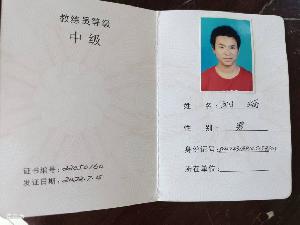 教练员等级
中级
证书编号:22050160
发证日期:2022.7.5
姓名:刘
性别:男
身份证号:
所在单位: